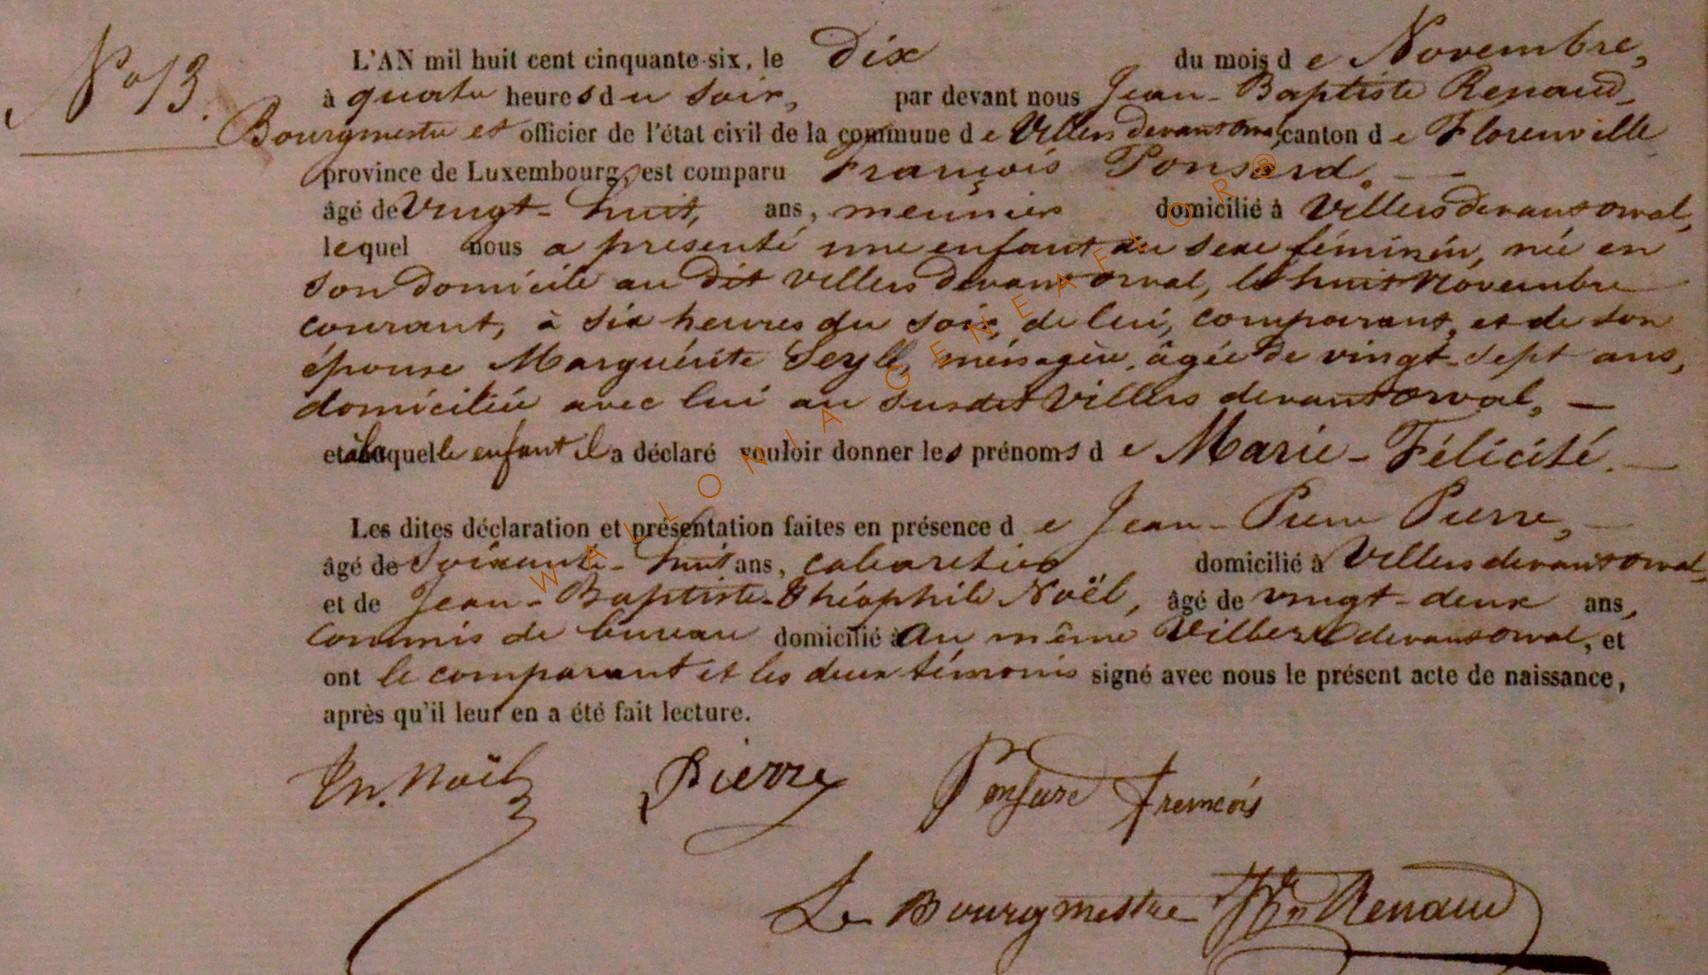 N° 13.
L'AN mil huit cent cinquante-six, le dix du mois de Novembre,
à quatre heures du soir, par devant nous Jean-Baptiste Renaud,
Bourgmestre et officier de l'état civil de la commune de Villers devant orval, canton de Florenville
province de Luxembourg, est comparu François Ponsard.
âgé de vingt-huit, ans, meunier domicilié à Villers devant orval,
lequel nous a présenté une enfant du sexe féminin, née en
son domicile au dit villers devant orval, le huit Novembre
courant, à six heures du soir, de lui, comparant, et de son
épouse Marguérite Seyll, ménagère, âgée de vingt-sept ans,
domiciliée avec lui au susdit Villers devant orval,
et à laquelle enfant il a déclaré vouloir donner les prénoms de Marie-Félicité.
Les dites déclaration et présentation faites en présence de Jean-Pierre Pierre,
âgé de soixante-huit ans, cabaretier domicilié à Villers devant orval
et de Jean-Baptiste-Théophile Noël, âgé de vingt-deux ans,
commis de bureau domicilié à au même Villers devant orval, et
ont le comparant et les deux témoins signé avec nous le présent acte de naissance,
après qu'il leur en a été fait lecture.
Th. Noël Pierre Ponsard François
Le Bourgmestre Renaud
WALLONIA GENEAFLOR®